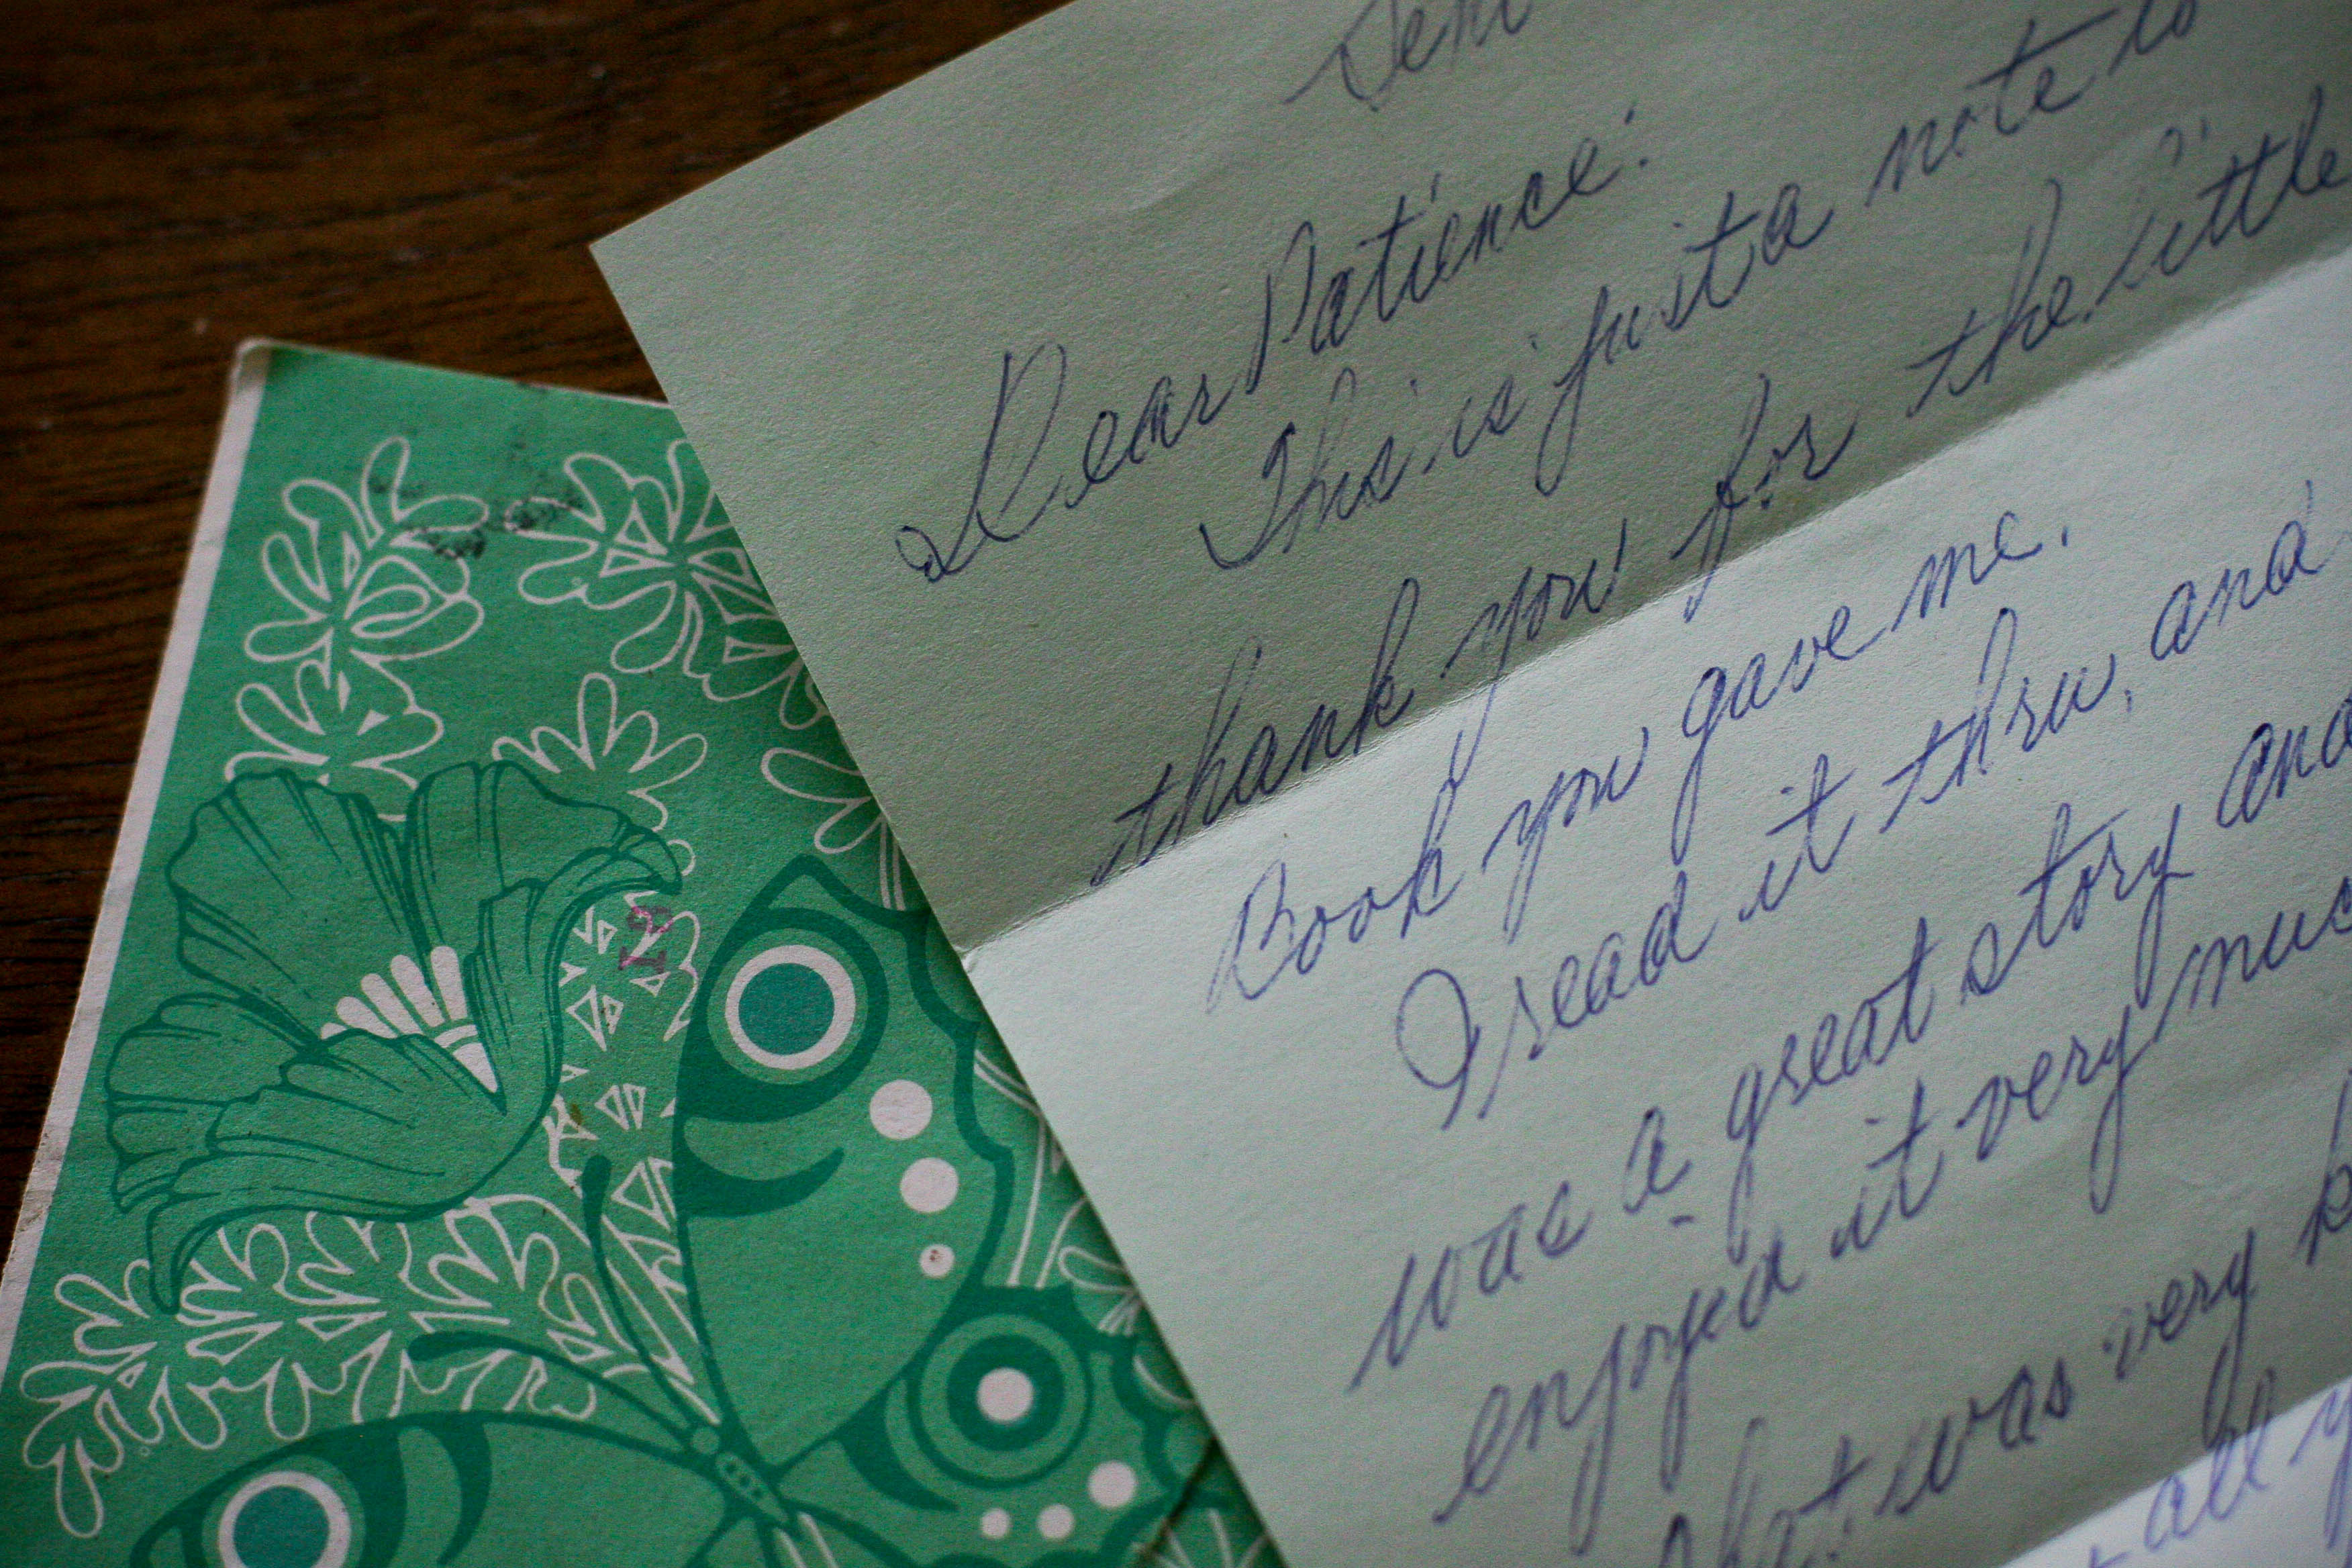 Dear Patience:
This is just a note to
thank you for the little
Book you gave me.
I read it thru, and
was a great story and
enjoyed it very
was very
all